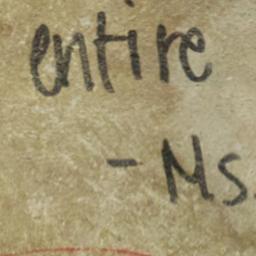 entire
- Ms.